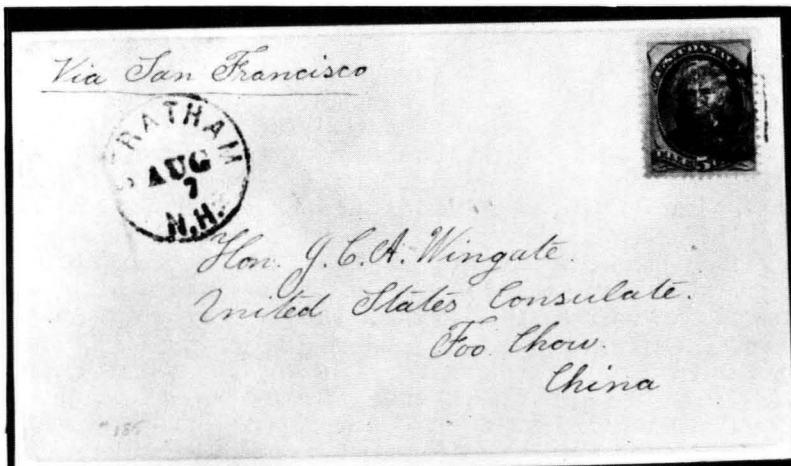 Via San Francisco
STRATHAM
AUG
7
N.H.
U.S. POSTAGE
Hon. J. C. A. Wingate.
United States Consulate.
Foo Chow.
China
185